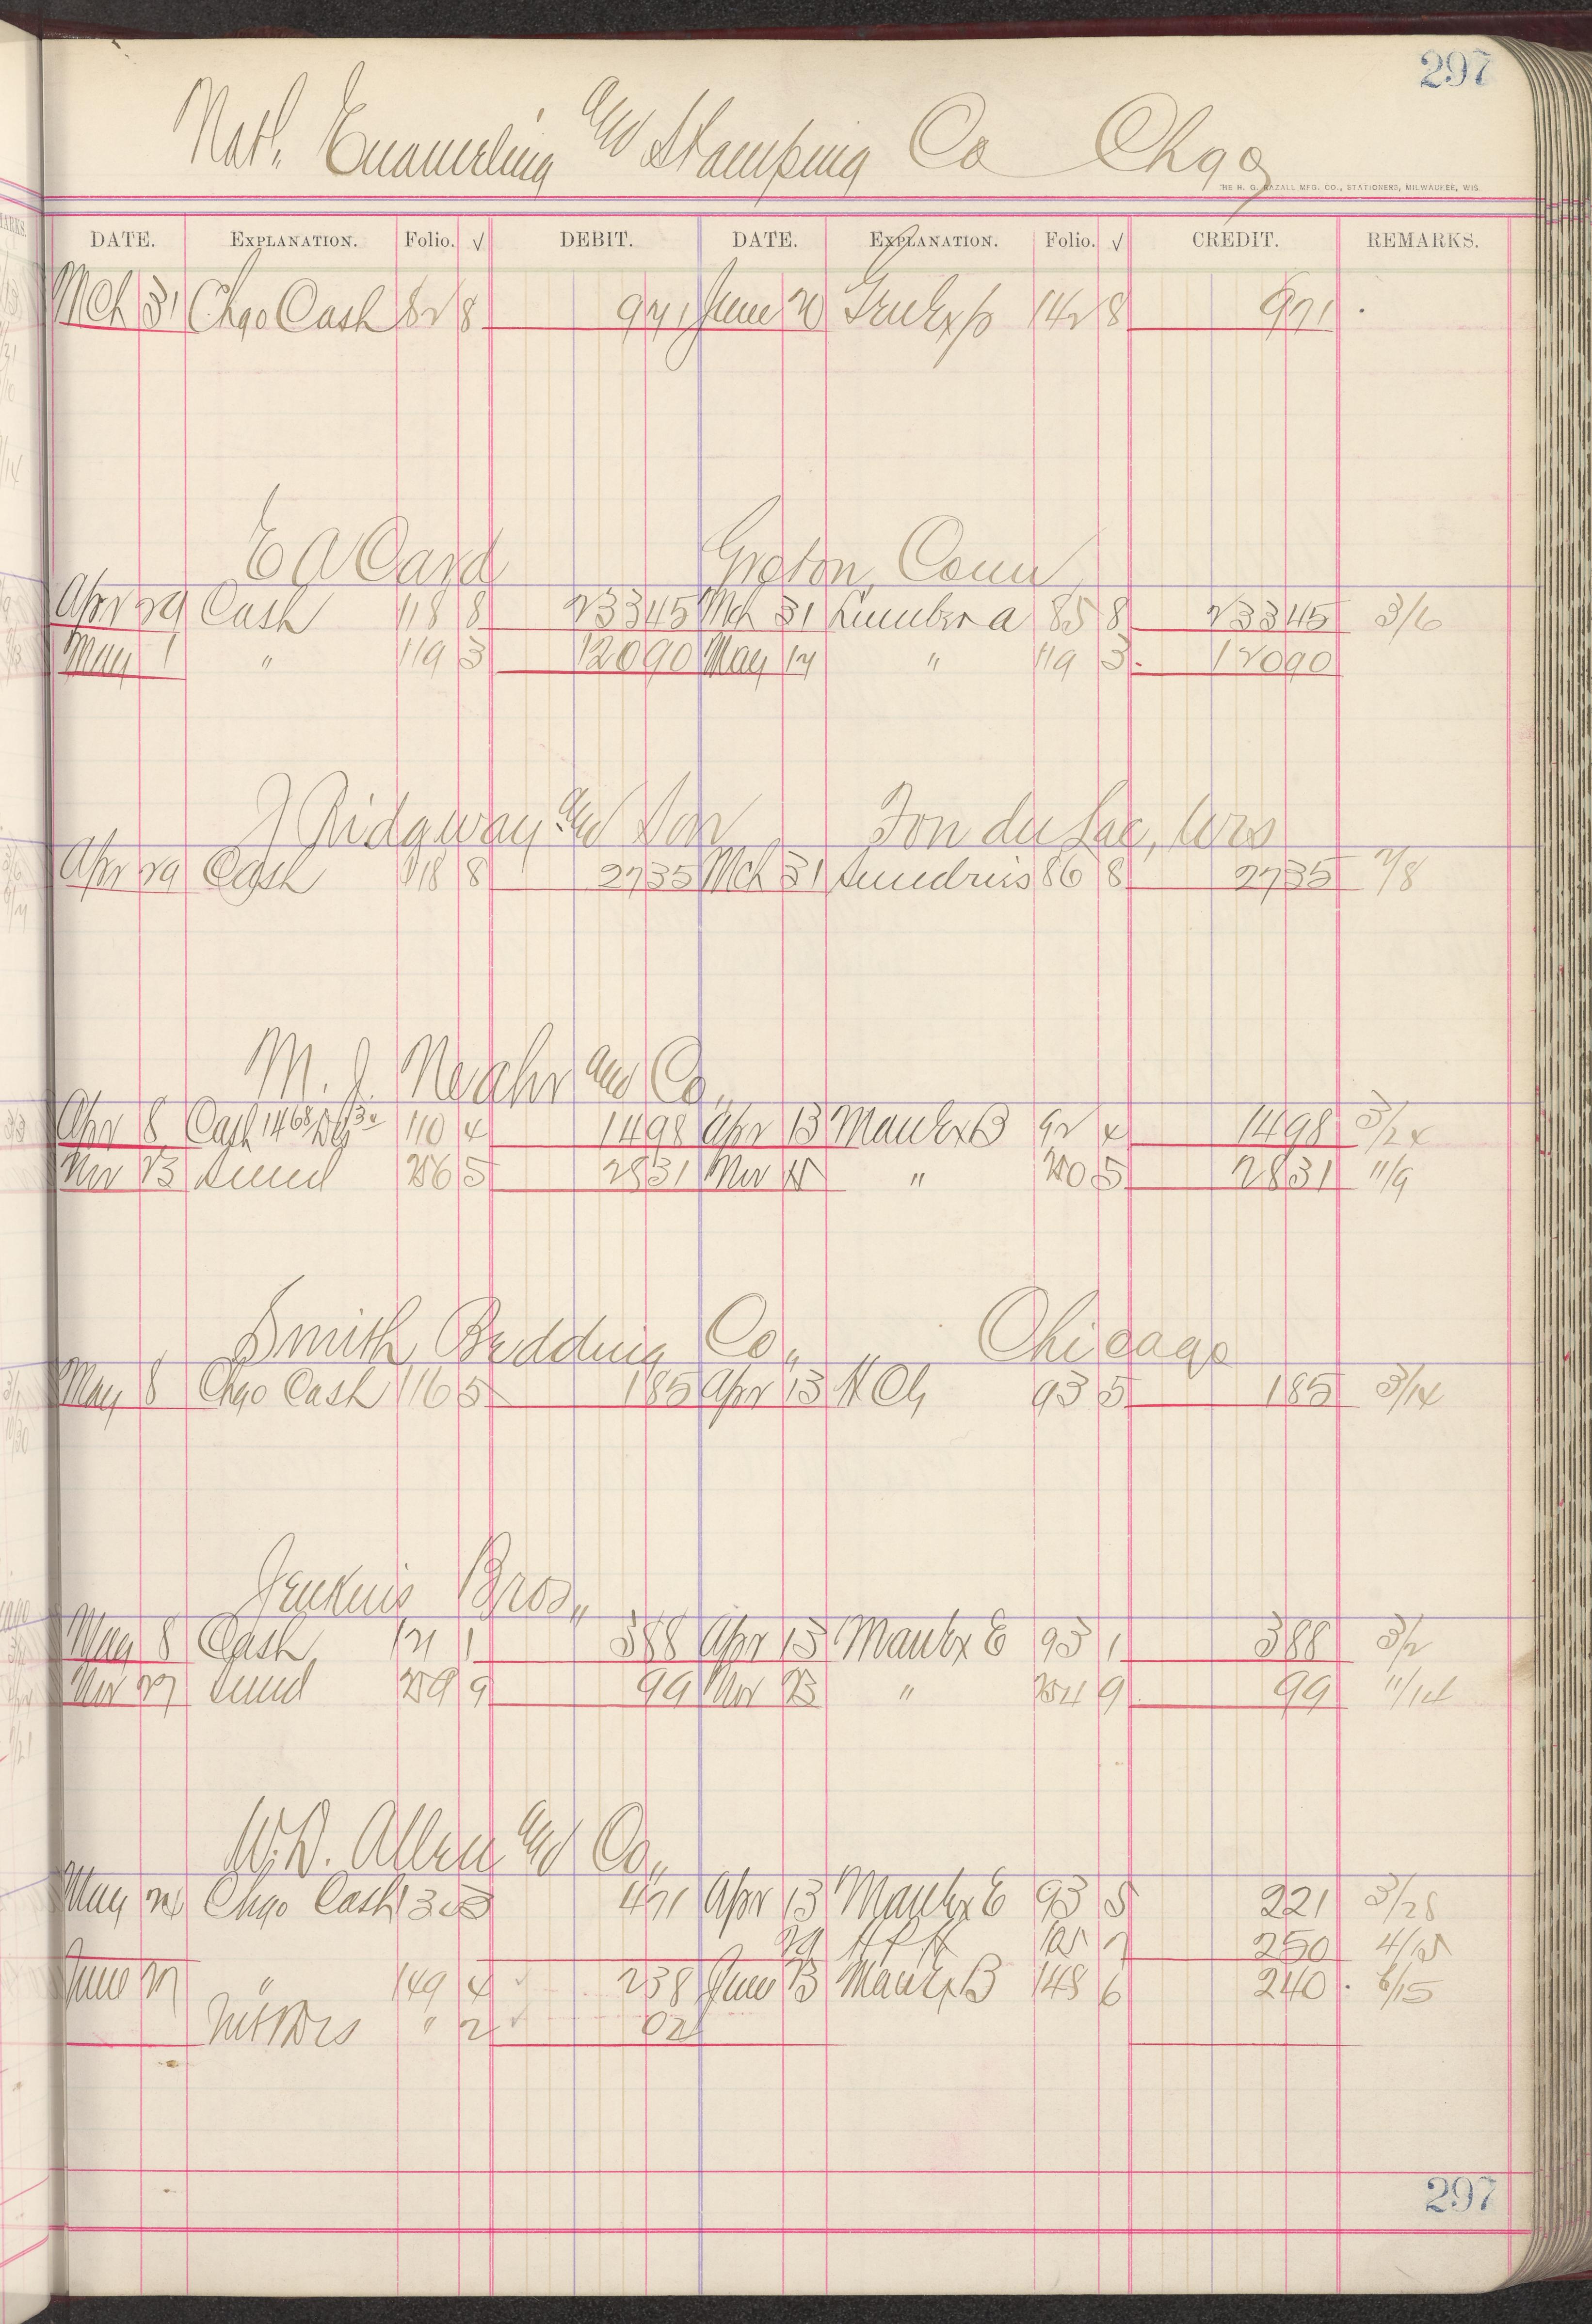 297
Natl. Enameling and Stamping Co Chgo
THE H. G. RAZALL MFG. CO., STATIONERS, MILWAUKEE, WIS.
DATE. EXPLANATION. Folio. √ DEBIT. DATE. EXPLANATION. Folio. √ CREDIT. REMARKS.
Mch 31 Chgo Cash 82 8 971 June 20 142 8 971
E A Card Groton, Conn
Apr 29 Cash 118 8 23345 Mch 31 Lumber a 85 8 23345 3/6
May 1 " 119 3 12090 May 14 " 119 3 12090
J Ridgway and Son Fon du Lac, Wis
Apr 29 Cash 118 8 2735 Mch 31 Sundries 86 8 2735 2/8
M. J. Neahr and Co.,
Apr 8 Cash 1468 110 4 1498 Apr 13 Manfg Ex B 92 4 1498 3/24
Nov 23 Sund 5 2831 Nov " 5 2831 11/9
Smith Bedding Co., Chicago
May 8 Chgo Cash 116 5 185 Apr 13 93 5 185 3/14
Jenkins Bros.,
May 8 Cash 121 1 388 Apr 13 93 1 388 3/2
Nov 27 Sund 9 99 Nov " 9 99 11/14
W. D. Allen and Co.,
May Chgo Cash 471 Apr 13 93 5 221 3/28
29 7 250 4/25
June 27 " 149 4 238 June 148 6 240 6/15
" 2 02
297